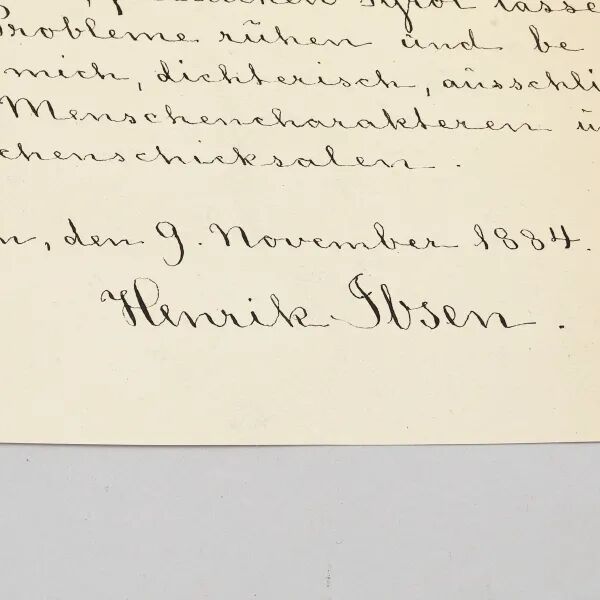 Tyrol lasse
Probleme rühen und be
mich, dichterisch, ausschli
Menschencharakteren u
chenschicksalen.
n, den 9. November 1884.
Henrik Ibsen.